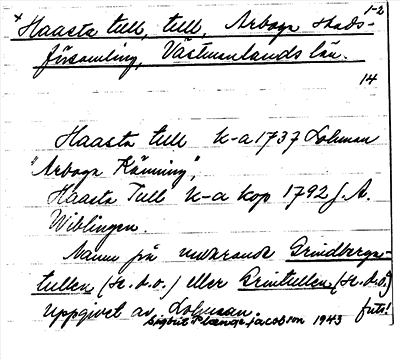 1-2
+ Haasta tull, tull, Arboga stads-
församling, Västmanlands län.
14
Haasta tull K-a 1737 Lohman
"Arboga Känning",
Haasta Tull K-a kop 1792 J. A.
Wiblingen.
Namn på nuvarande Grindberga-
tullen (se d. o.) eller Grintullen (se d. o.)
uppgivet av Lohman. forts!
Sigbrit Plænge Jacobson 1943